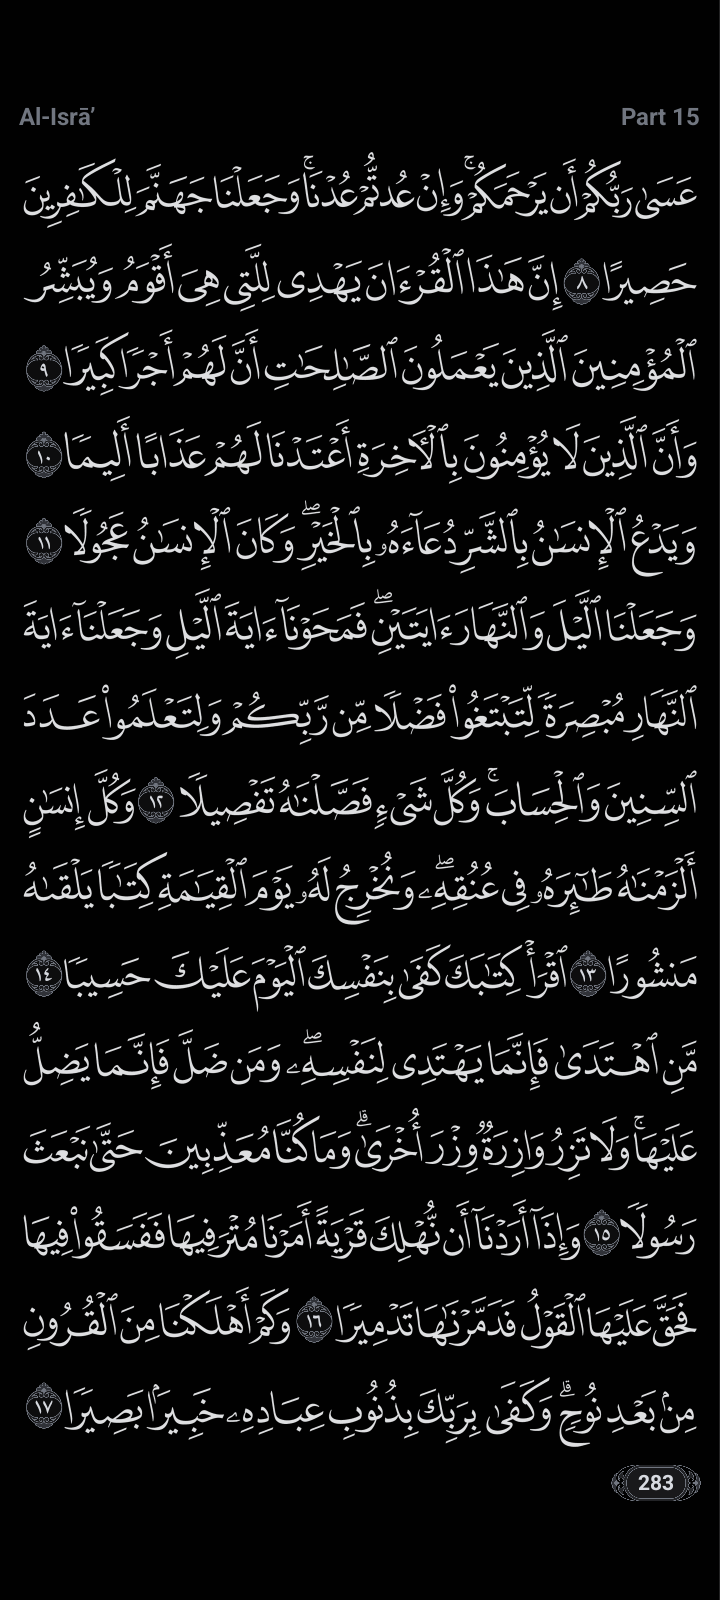 Al-Isrā’
Part 15
عَسَىٰ رَبُّكُمْ أَن يَرْحَمَكُمْ ۚ وَإِنْ عُدتُّمْ عُدْنَا ۘ وَجَعَلْنَا جَهَنَّمَ لِلْكَـٰفِرِينَ
حَصِيرًا ٨ إِنَّ هَـٰذَا ٱلْقُرْءَانَ يَهْدِى لِلَّتِى هِىَ أَقْوَمُ وَيُبَشِّرُ
ٱلْمُؤْمِنِينَ ٱلَّذِينَ يَعْمَلُونَ ٱلصَّـٰلِحَـٰتِ أَنَّ لَهُمْ أَجْرًا كَبِيرًا ٩
وَأَنَّ ٱلَّذِينَ لَا يُؤْمِنُونَ بِٱلْـَٔاخِرَةِ أَعْتَدْنَا لَهُمْ عَذَابًا أَلِيمًا ١٠
وَيَدْعُ ٱلْإِنسَـٰنُ بِٱلشَّرِّ دُعَآءَهُۥ بِٱلْخَيْرِ ۖ وَكَانَ ٱلْإِنسَـٰنُ عَجُولًا ١١
وَجَعَلْنَا ٱلَّيْلَ وَٱلنَّهَارَ ءَايَتَيْنِ ۖ فَمَحَوْنَآ ءَايَةَ ٱلَّيْلِ وَجَعَلْنَآ ءَايَةَ
ٱلنَّهَارِ مُبْصِرَةً لِّتَبْتَغُوا۟ فَضْلًا مِّن رَّبِّكُمْ وَلِتَعْلَمُوا۟ عَدَدَ
ٱلسِّنِينَ وَٱلْحِسَابَ ۚ وَكُلَّ شَىْءٍ فَصَّلْنَـٰهُ تَفْصِيلًا ١٢ وَكُلَّ إِنسَـٰنٍ
أَلْزَمْنَـٰهُ طَـٰٓئِرَهُۥ فِى عُنُقِهِۦ ۖ وَنُخْرِجُ لَهُۥ يَوْمَ ٱلْقِيَـٰمَةِ كِتَـٰبًا يَلْقَىٰهُ
مَنشُورًا ١٣ ٱقْرَأْ كِتَـٰبَكَ كَفَىٰ بِنَفْسِكَ ٱلْيَوْمَ عَلَيْكَ حَسِيبًا ١٤
مَّنِ ٱهْتَدَىٰ فَإِنَّمَا يَهْتَدِى لِنَفْسِهِۦ ۖ وَمَن ضَلَّ فَإِنَّمَا يَضِلُّ
عَلَيْهَا ۚ وَلَا تَزِرُ وَازِرَةٌ وِزْرَ أُخْرَىٰ ۗ وَمَا كُنَّا مُعَذِّبِينَ حَتَّىٰ نَبْعَثَ
رَسُولًا ١٥ وَإِذَآ أَرَدْنَآ أَن نُّهْلِكَ قَرْيَةً أَمَرْنَا مُتْرَفِيهَا فَفَسَقُوا۟ فِيهَا
فَحَقَّ عَلَيْهَا ٱلْقَوْلُ فَدَمَّرْنَـٰهَا تَدْمِيرًا ١٦ وَكَمْ أَهْلَكْنَا مِنَ ٱلْقُرُونِ
مِنۢ بَعْدِ نُوحٍ ۗ وَكَفَىٰ بِرَبِّكَ بِذُنُوبِ عِبَادِهِۦ خَبِيرًۢا بَصِيرًا ١٧
283